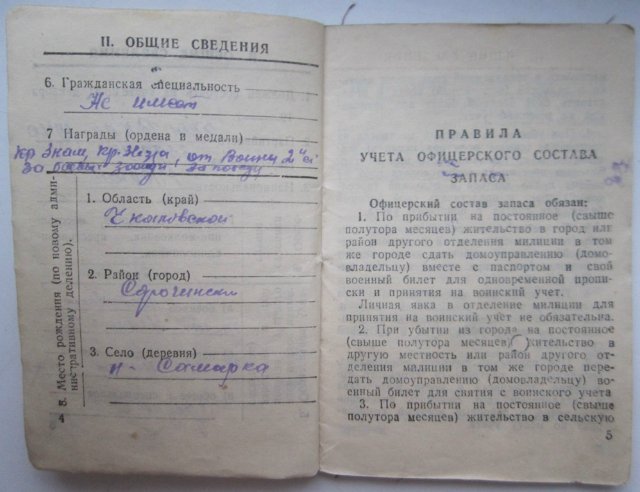 II. ОБЩИЕ СВЕДЕНИЯ
6. Гражданская специальность
Не имеет
7 Награды (ордена и медали)
кр Знам, кр. Звезда, от. Войны 2й ст
За боевые заслуги, за победу
8. Место рождения (по новому адми-
нистративному делению).
1. Область (край)
Чкаловской
2. Район (город)
Сорочинский
3. Село (деревня)
п- Самарка
4
ПРАВИЛА
УЧЕТА ОФИЦЕРСКОГО СОСТАВА
ЗАПАСА
Офицерский состав запаса обязан:
1. По прибытии на постоянное (свыше
полутора месяцев) жительство в город или
район другого отделения милиции в том
же городе сдать домоуправлению (домо-
владельцу) вместе с паспортом и свой
военный билет для одновременной пропис-
ки и принятия на воинский учет.
Личная явка в отделение милиции для
принятия на воинский учет не обязательна.
2. При убытии из города на постоянное
(свыше полутора месяцев) жительство в
другую местность или район другого от-
деления милиции в том же городе пере-
дать домоуправлению (домовладельцу) во-
енный билет для снятия с воинского учета
3. По прибытии на постоянное (свыше
полутора месяцев) жительство в сельскую
5